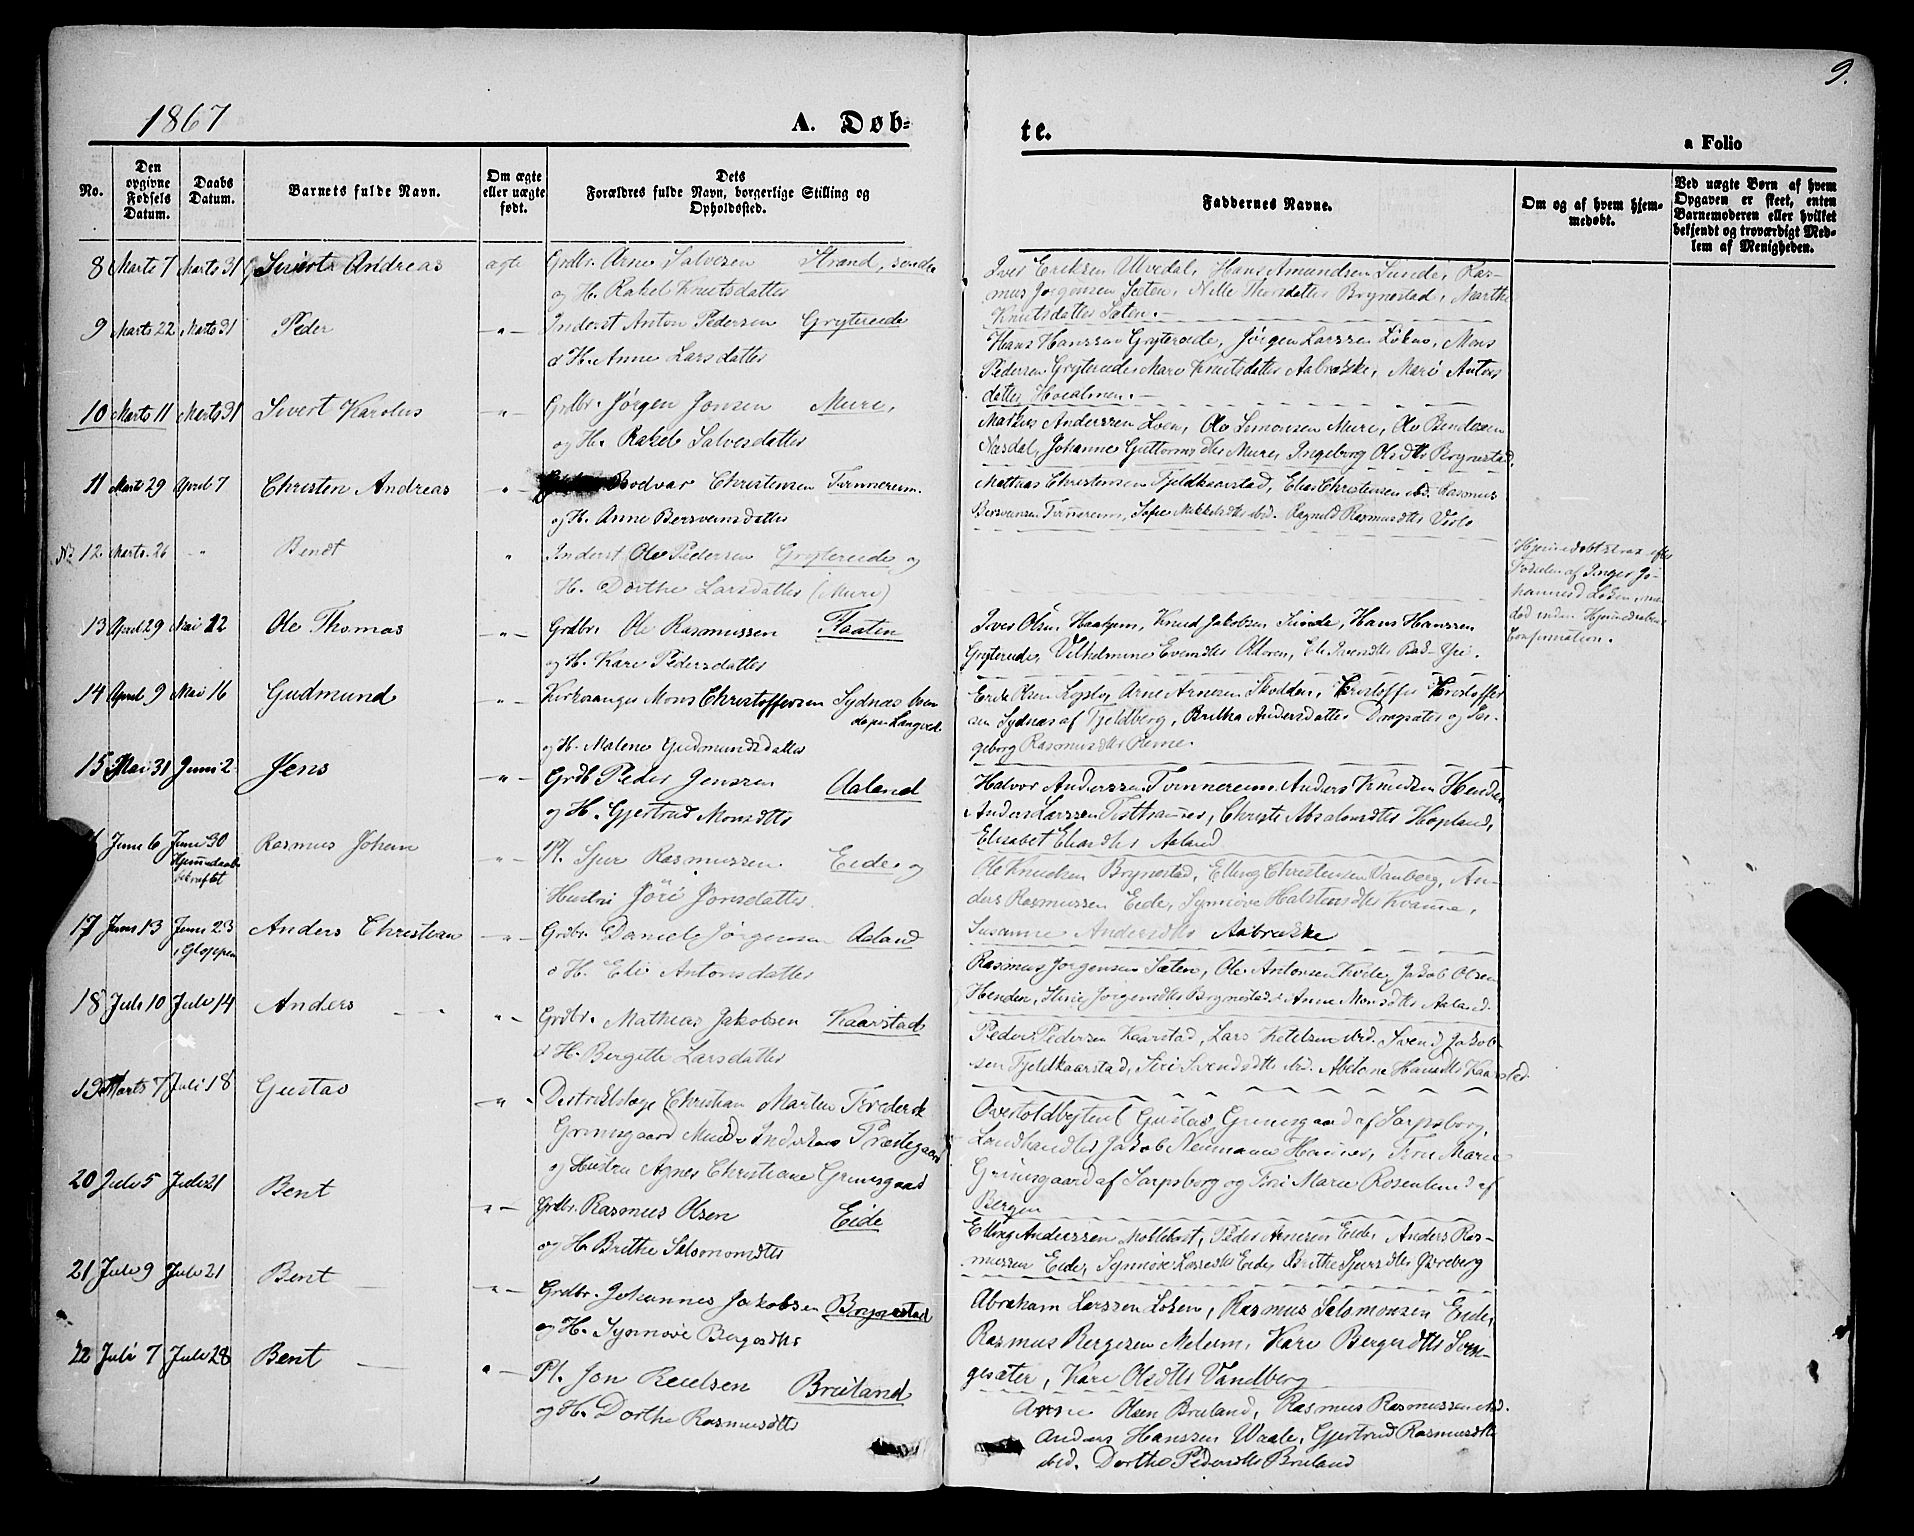 9.
1867
A. Døb-
te.
a Folio
No.
Den opgivne Fødsels Datum.
Daabs Datum.
Barnets fulde Navn.
Om ægte eller uægte født.
Dets Forældres fulde Navn, borgerlige Stilling og Opholdssted.
Faddernes Navne.
Om og af hvem hjemmedøbt.
Ved uægte Børn af hvem Opgaven er skeet, enten Barnemoderen eller hvilket bekjendt og troværdigt Medlem af Menigheden.
8 Marts 7 Marts 31 Sivert Andreas ægte Grdbr. Arne Salvesen Strand, søndre
og H. Rakel Knutsdatter
Iver Eriksen Utvedal, Hans Amundsen Sunde, Ras-
mus Jørgensen Sæten, Nille Thorsdatter Brynestad, Marthe
Knutsdatter Sæten.
9 Marts 22 Marts 31 Peder -"- Inderst Anton Pedersen Grytereide
& H. Anne Larsdatter
Hans Hanssen Gryterede, Jørgen Larssen Løken, Mons
Pedersen Gryterede, Mari Knutsdatter Aabrække, Mari Antons
datter
10 Marts 11 Marts 31 Sivert Karolus -"- Grdbr. Jørgen Jonsen Mure,
og H. Rakel Salvesdatter
Markus Anderssen Loen, Ole Simonsen Mure, Ole Bendixen
Næsdal, Johanne Guttormsdtr Mure, Ingeborg Olsdtr Brynestad,
11 Marts 29 April 7 Christen Andreas -"- Bodvar Christensen Tvinnereim.
og H. Anne Bersvensdatter
Mathias Christensen Fjeldkaarstad, Elias Christensen ibd. Rasmus
Bersvensen Tvinnereim, Sofie Mikkelsdtr ibd. Ragnild Rasmusdtr Visle
No 12. Marts 26 " Bendt " Inderst Ole Pedersen Gryterede og
H. Dorthe Larsdatter (Mure)
Hjemmedøbt strax efter
Fødselen af Inger Jo-
hannesd Løken, men
død inden Hjemmedaabens
Confirmation.
13 April 29 Mai 12 Ole Thomas -"- Grdbr. Ole Rasmussen Faaten
og H. Kari Pedersdatter
Iver Olsen Haahjem, Knud Jakobsen Sunde, Hans Hanssen
Gryterede, Vilhelmine Evensdtr Olden, Eli Ivensdtr
14 April 9 Mai 16 Gudmund -"- Kirkesanger Mons Christoffersen Sydnæs
og H. Malene Gudmundsdatter
Eirik Olsen Arne Arnesen Skodden, Kristoffer Kristoffer
sen Sydnæs af Fjeldberg, Britha Andersdatter Dragsæter og In-
geborg Rasmusdtr
15 Mai 31 Juni 2 Jens -"- Grdb. Peder Jenssen Aaland
og H. Gjertrud Monsdtr
Halvor Anderssen Tvinnereim, Anders Knudsen Henden
Anders Larssen Christi Absalonsdtr Hopland,
Elisabet Eliasdtr Aaland
Juni 6 Juni 30 Rasmus Johan " Pl. Sjur Rasmussen Eide og
Hjemmedaab
bekræftet
Hustru Jöri Jonsdatter
Ole Knudsen Brynestad, Elling Christensen Vanberg, An-
ders Rasmussen Eide, Synnøve Halstensdtr Kvamme,
Susanne Andersdtr Aabrække
17 Juni 13 Juni 23 Anders Christian -"- Grdbr. Daniel Jørgensen Aaland
i Gloppen
& H. Eli Antonsdatter
Rasmus Jørgensen Sæten, Ole Antonsen Kvile, Jakob Olsen
Henden, Stine Jørgensdtr Brynestad & Anne Monsdtr Aaland.
18 Juli 10 Juli 14 Anders "- Grdbr. Mathias Jakobsen Kaarstad
& H. Bergitte Larsdatter
Peder Pedersen Kaarstad, Lars Ketelsen ibd. Svend Jakob-
sen Fjeldkaarstad, Siri Svendsdtr ibd. Abelone Hansdtr Kaarstad
19 Marts 7 Juli 18 Gustav "- Destriktslæge Christian Martin Frederik
Grimsgaard Præstegaard
og Hustru Agnes Christiane Grimsgaard
Overtoldbetjent Gustav Grimsgaard af Sarpsborg,
Landhandler Jakob Neumann Fru Marie
Grimsgaard af Sarpsborg og Frk Marie Rosenlund af
Bergen
20 Juli 5 Juli 21 Bent "- Grdbr. Rasmus Olsen Eide
og H. Brithe Salomonsdtr
Elling Anderssen Mollekast, Peder Arnesen Eide, Anders Ras-
mussen Eide, Synnøve Lassesdtr Eide, Brithe Sjursdtr Øvreberg
21 Juli 9 Juli 21 Bent "- Grdbr. Johannes Jakobsen Brynestad
og H. Synnøve Bergesdtr
Abraham Larssen Loken, Rasmus Salamonsen Eide,
Rasmus Bergesen Melum, Kari Bergesdtr
gesæter, Kari Olsdtr Vandberg
22 Juli 7 Juli 28 Bent "- Pl. Jon Reielsen Breiland
og H. Dorthe Rasmusdtr
Arne Olsen Breiland, Rasmus Rasmussen ibd.
Anders Hanssen Waale, Gjertrud Rasmusdtr
ibid. Dorthe Pedersdtr Breiland